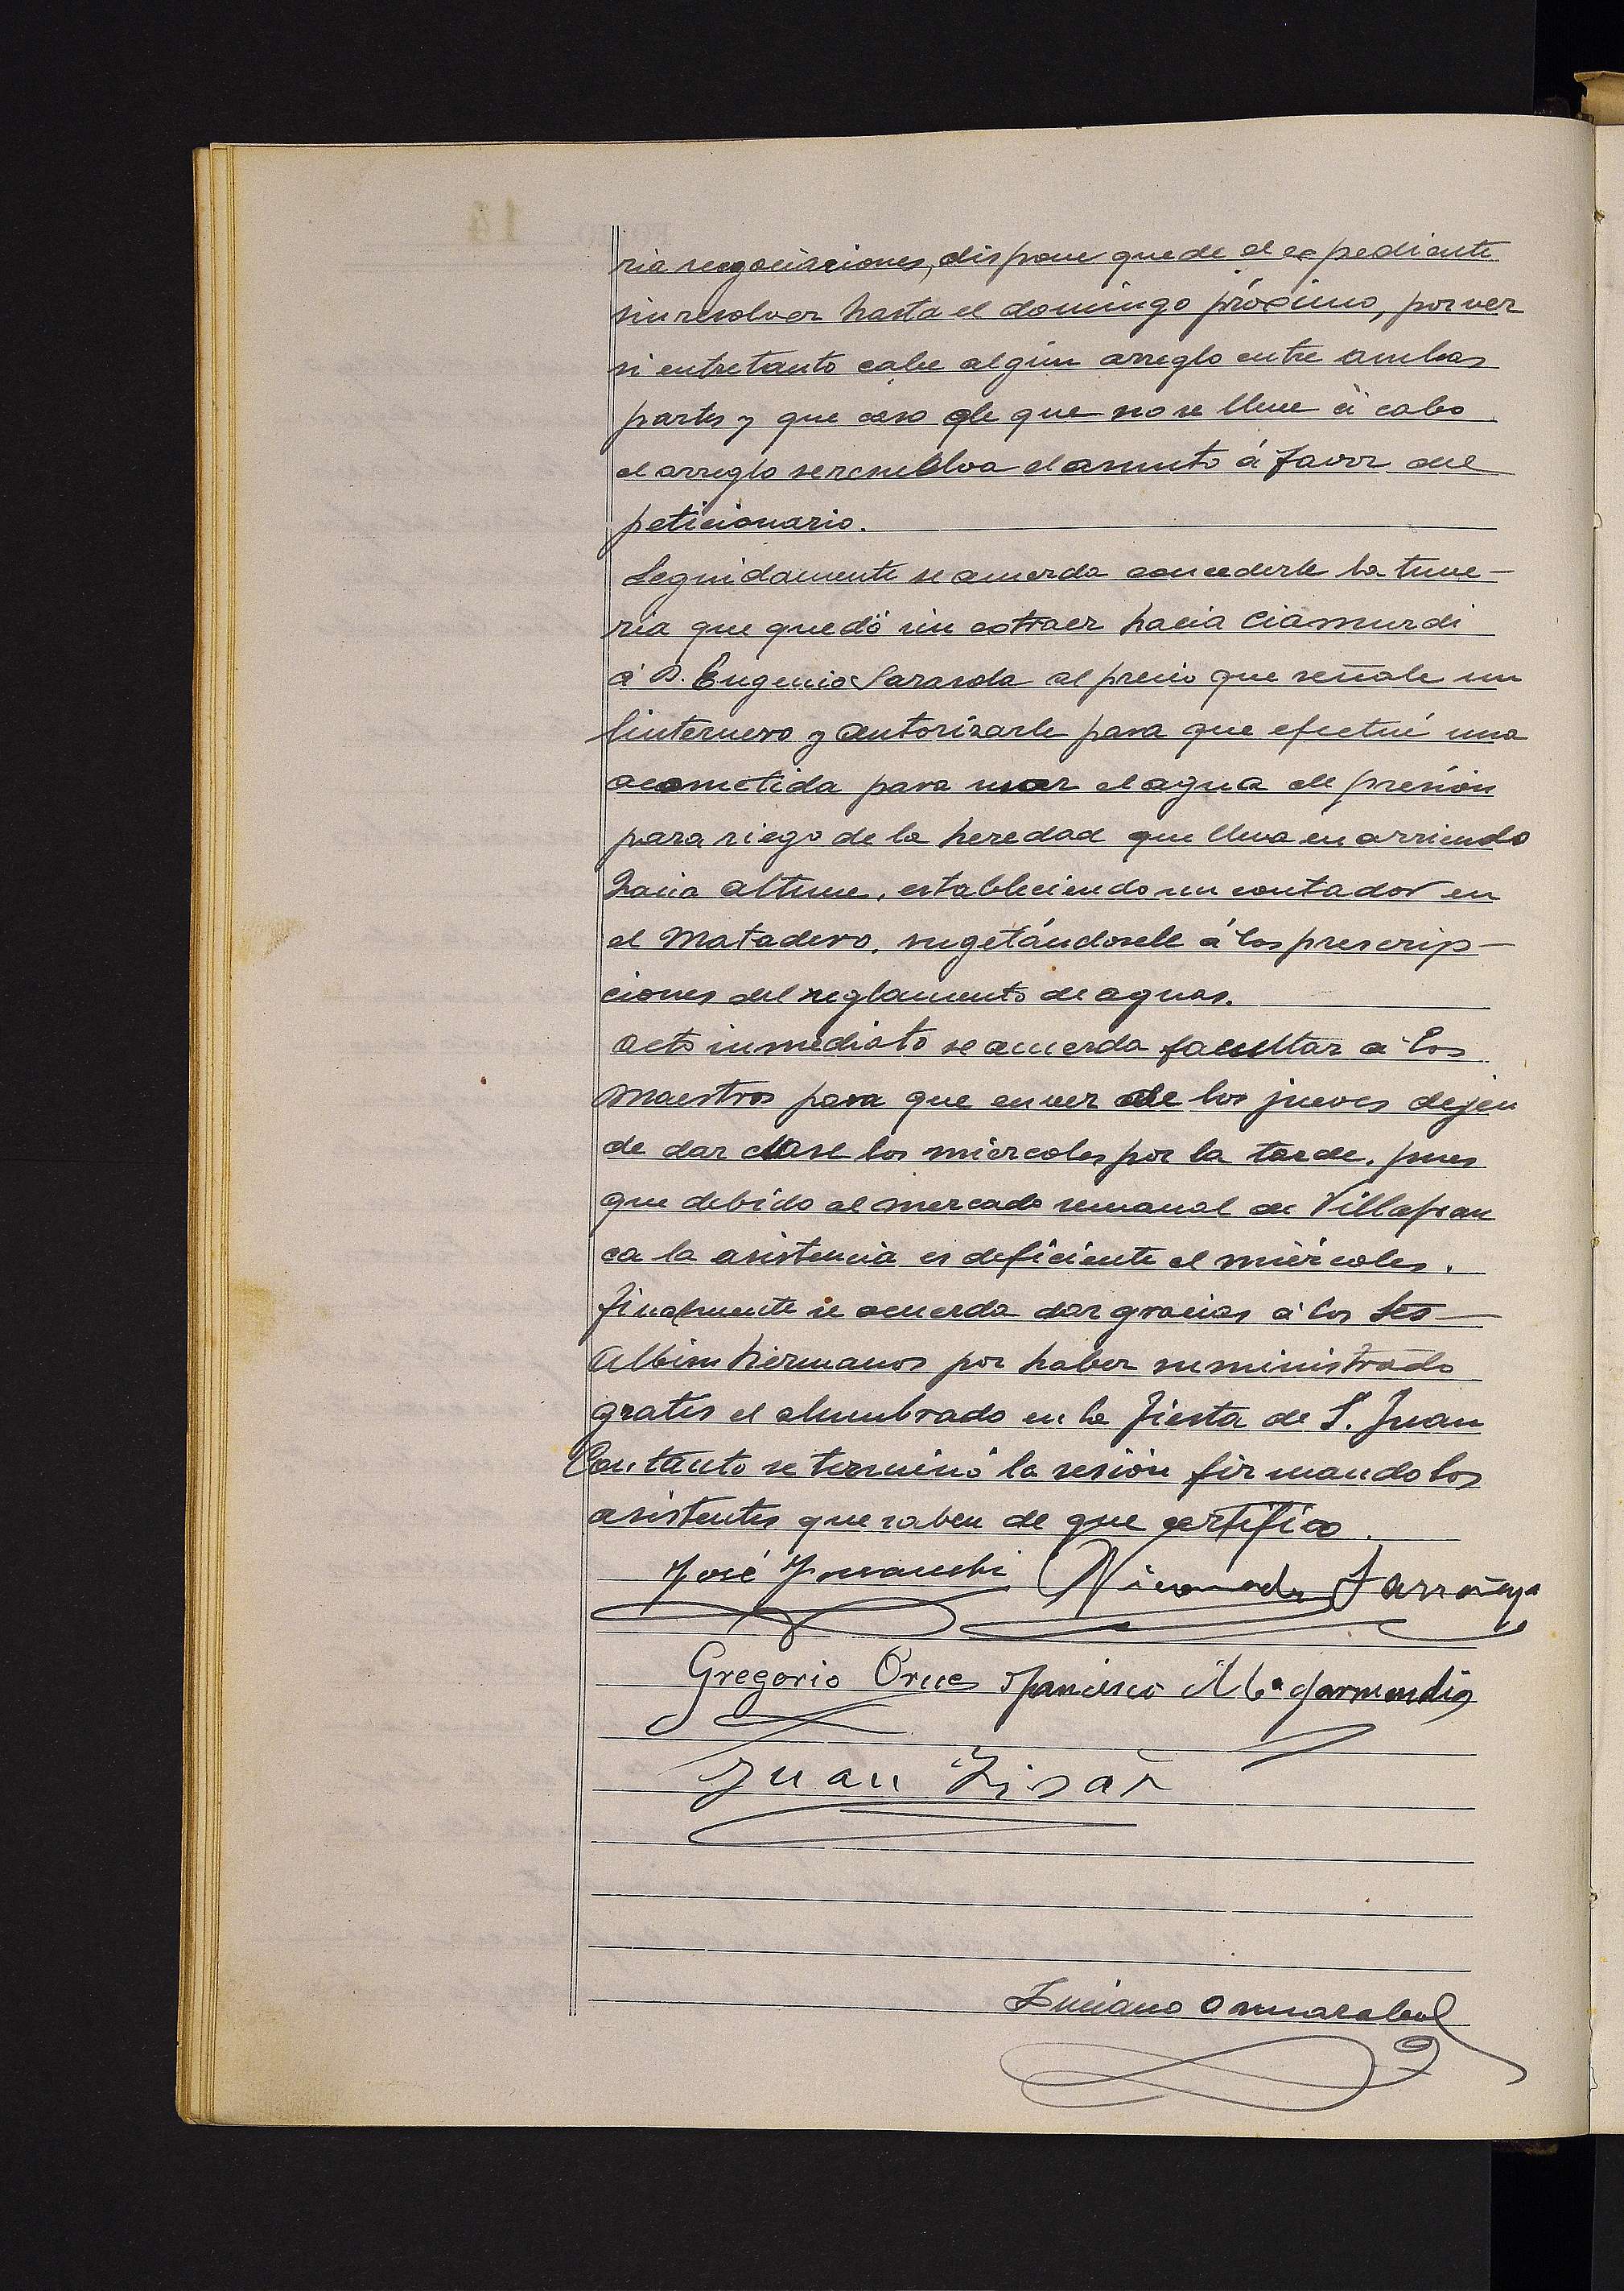 ria negociaciones, dispone quede el expediente
sin resolver hasta el domingo próximo, por ver
si entretanto cabe algún arreglo entre ambas
partes y que caso de que no se lleve á cabo
el arreglo se resuelva el asunto á favor del
peticionario.
Seguidamente se acuerda concederle la tuve-
ria que quedó sin extraer hacia Ciamurdi
á D. Eugenio Sarasola al precio que señale un
linternero y autorizarle para que efectué una
acometida para usar el agua de presión
para riego de la heredad que lleva en arriendo
hacia Altune, estableciendo un contador en
el Matadero, sugetándosele á las prescrip-
ciones del reglamento de aguas.
Acto inmediato se acuerda facultar á los
Maestros para que en vez de los jueves dejen
de dar clase los miércoles por la tarde, pues
que debido al mercado semanal de Villafran
ca la asistencia es deficiente el miércoles.
Finalmente se acuerda dar gracias á los Sres
Albisu hermanos por haber suministrado
gratis el alumbrado en la fiesta de S. Juan
Con tanto se terminó la sesión firmando los
asistentes que saben de que certifico.
José
Gregorio Orue Francisco Mª Garmendia
Juan
Luciano